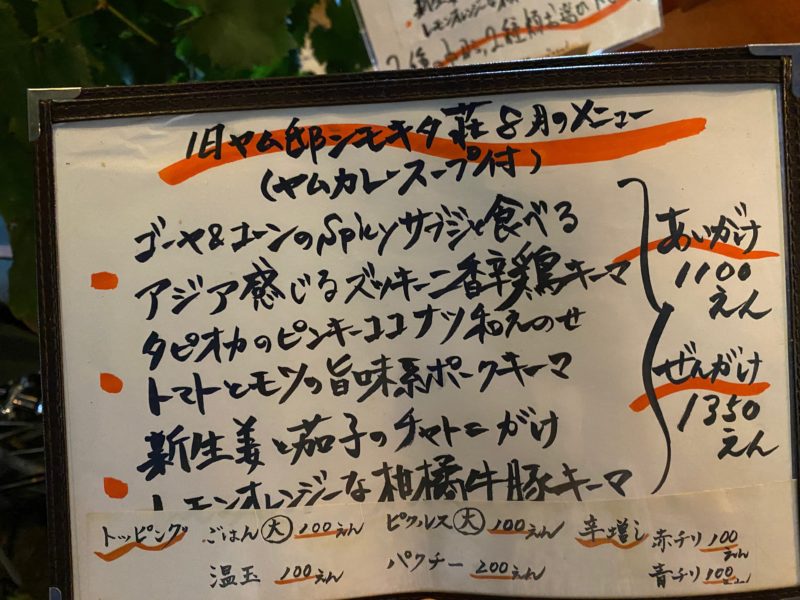 レモンオレンジーな
旧ヤム邸シモキタ荘8月のメニュー
(ヤムカレースープ付)
ゴーヤ&コーンのSpicyサブジと食べる
アジア感じるズッキーニ香辛鶏キーマ
タピオカのピンキーココナツ和えのせ
トマトとモツの旨味系ポークキーマ
新生姜と茄子のチャトニがけ
レモンオレンジーな柑橘牛豚キーマ
あいがけ
1100
えん
ぜんがけ
1350
えん
トッピング ごはん大100えん ピクルス大100えん 辛増し 赤チリ100えん
温玉 100えん パクチー 200えん 青チリ100えん